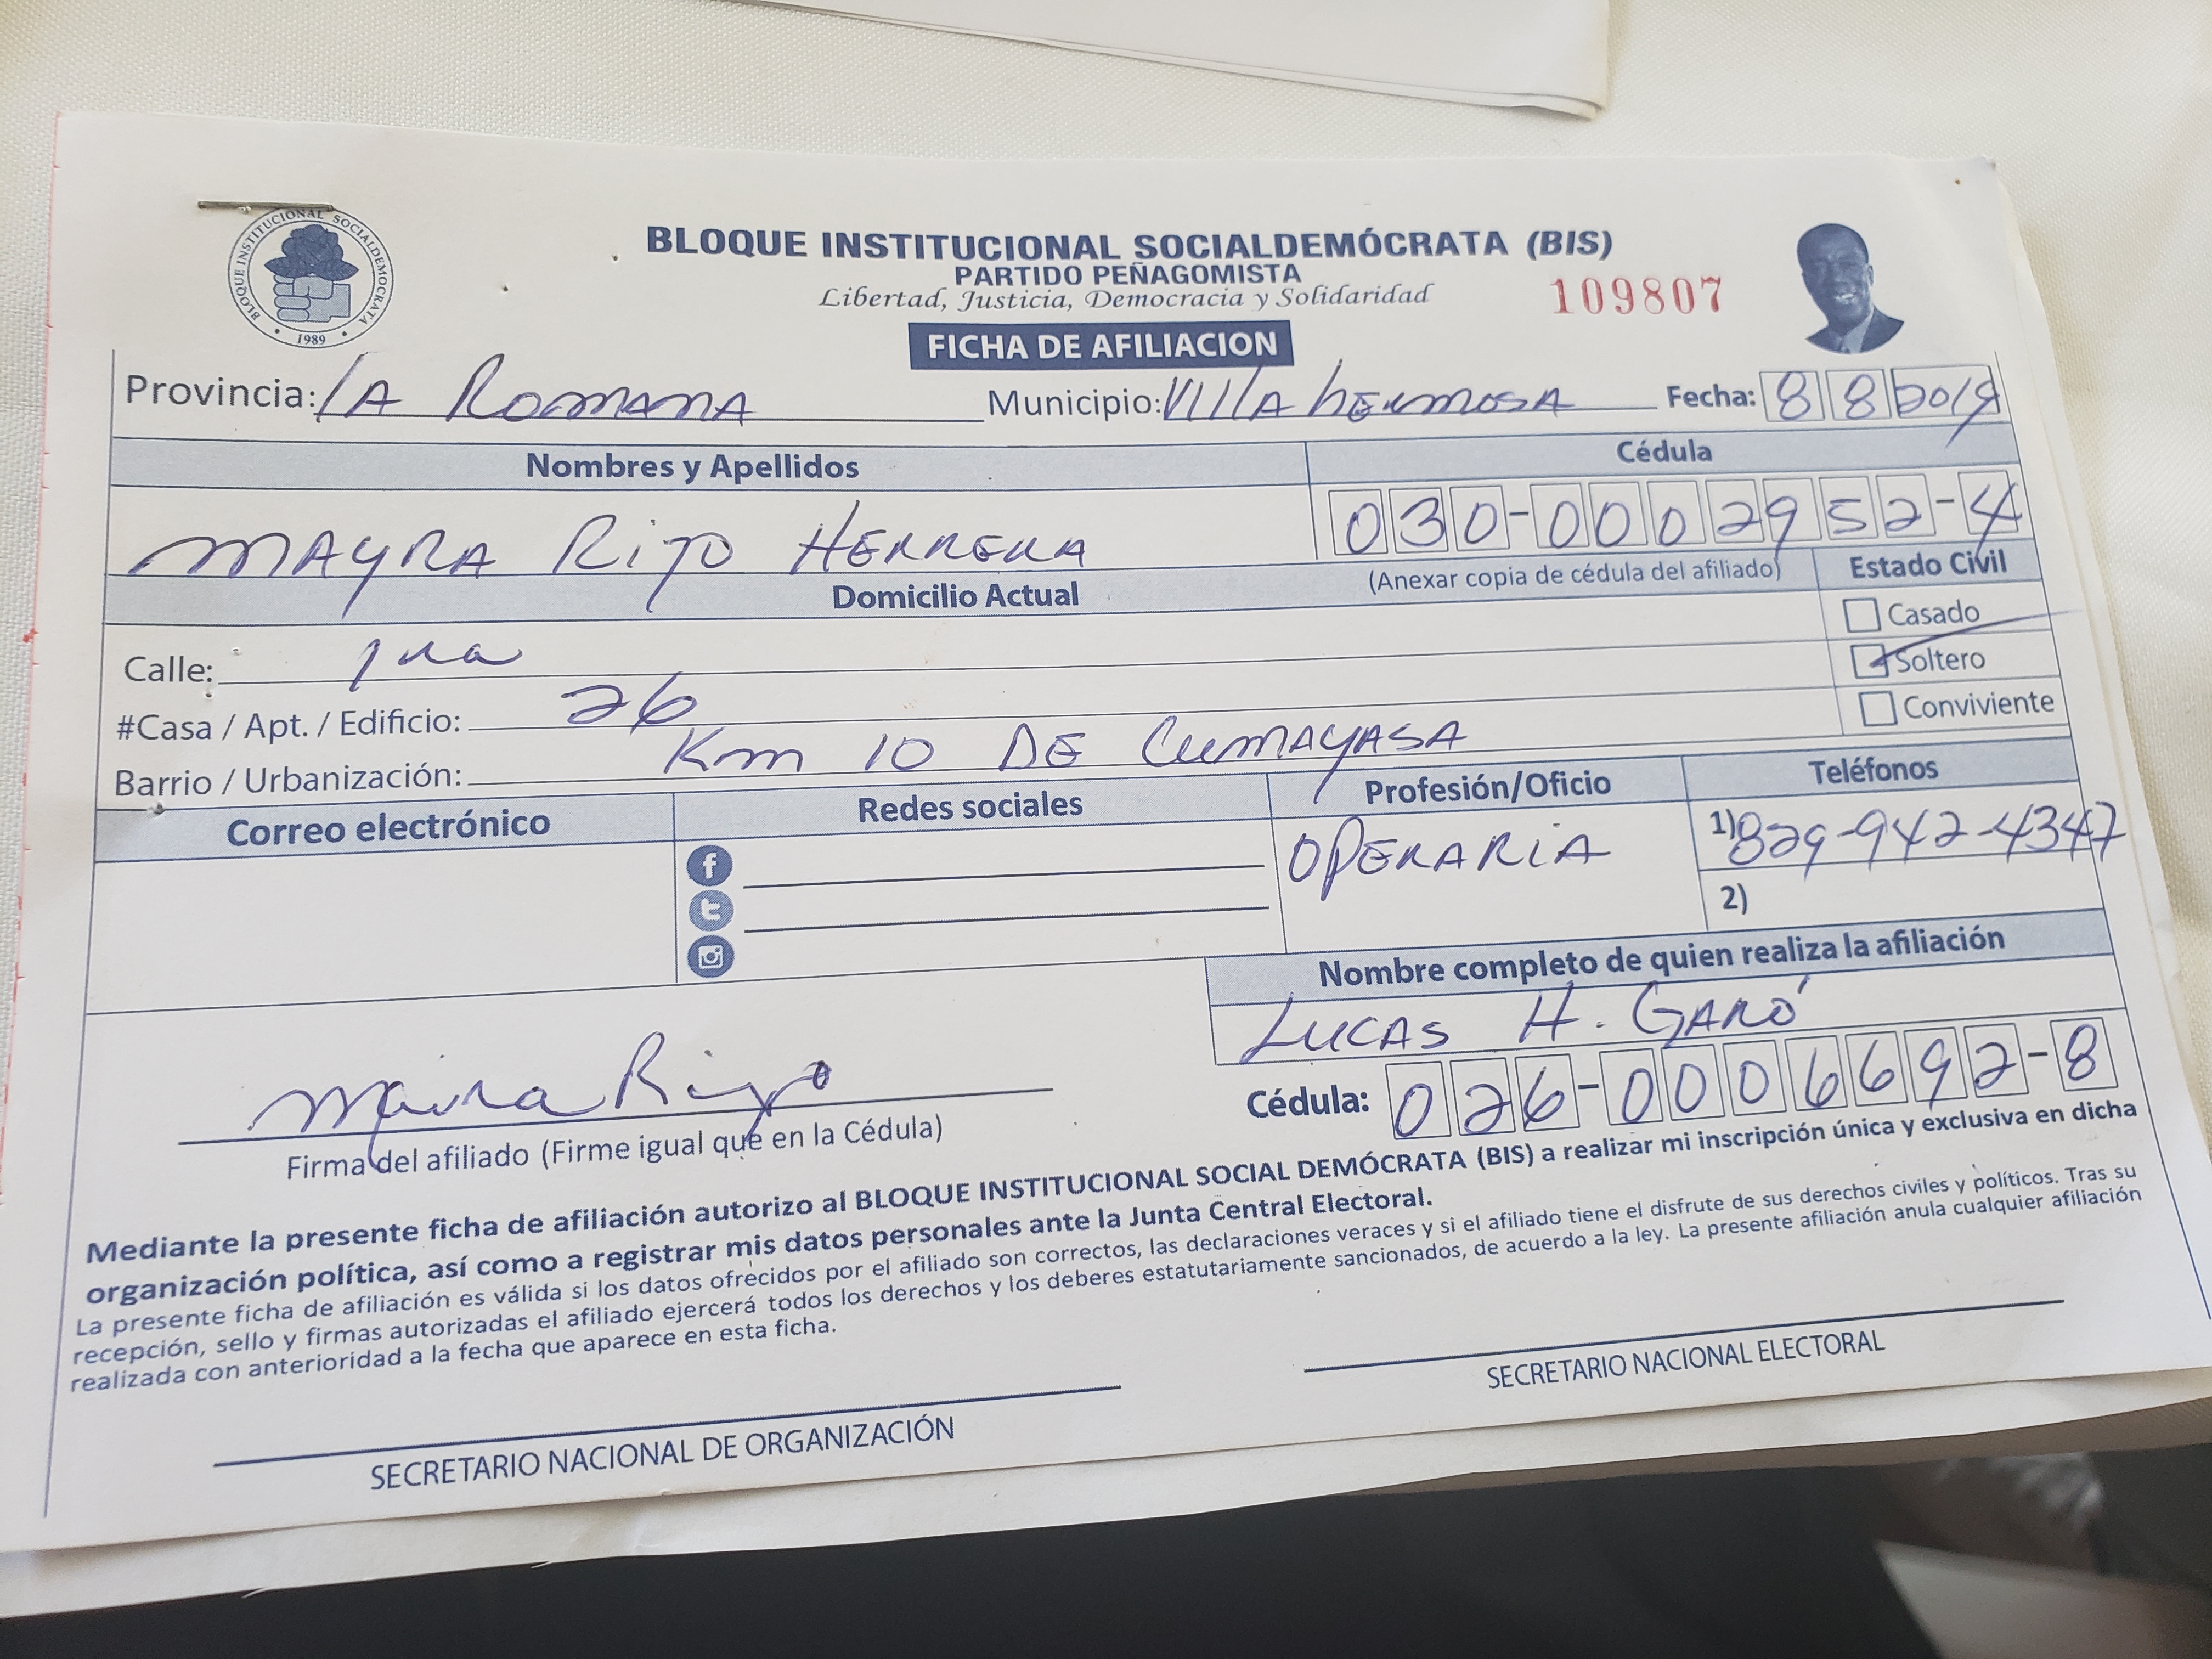 BLOQUE INSTITUCIONAL SOCIALDEMOCRATA
1989
BLOQUE INSTITUCIONAL SOCIALDEMÓCRATA (BIS)
PARTIDO PEÑAGOMISTA
Libertad, Justicia, Democracia y Solidaridad
109807
FICHA DE AFILIACION
Provincia: LA ROMANA Municipio: VIllA hERMOSA Fecha: 8 8 2019
Nombres y Apellidos Cédula
MAYRA RIJO HERRERA 030-0002952-4
Domicilio Actual (Anexar copia de cédula del afiliado) Estado Civil
Casado
Calle: 1ra Soltero
#Casa / Apt. / Edificio: 26 Conviviente
Barrio / Urbanización: Km 10 DE CUMAYASA
Correo electrónico Redes sociales Profesión/Oficio Teléfonos
OPERARIA 1) 829-942-4347
2)
Nombre completo de quien realiza la afiliación
LUCAS H. GARÓ
Maira Rijo
Cédula: 026-0006692-8
Firma del afiliado (Firme igual que en la Cédula)
Mediante la presente ficha de afiliación autorizo al BLOQUE INSTITUCIONAL SOCIAL DEMÓCRATA (BIS) a realizar mi inscripción única y exclusiva en dicha
organización política, así como a registrar mis datos personales ante la Junta Central Electoral.
La presente ficha de afiliación es válida si los datos ofrecidos por el afiliado son correctos, las declaraciones veraces y si el afiliado tiene el disfrute de sus derechos civiles y políticos. Tras su
recepción, sello y firmas autorizadas el afiliado ejercerá todos los derechos y los deberes estatutariamente sancionados, de acuerdo a la ley. La presente afiliación anula cualquier afiliación
realizada con anterioridad a la fecha que aparece en esta ficha.
SECRETARIO NACIONAL DE ORGANIZACIÓN
SECRETARIO NACIONAL ELECTORAL